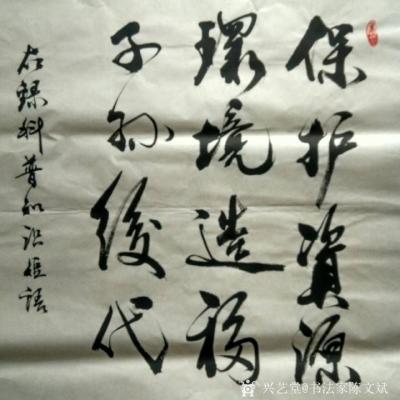 保护資源
環境造福
子孙後代
右録科普知识標語
兴艺堂@书法家陈文斌